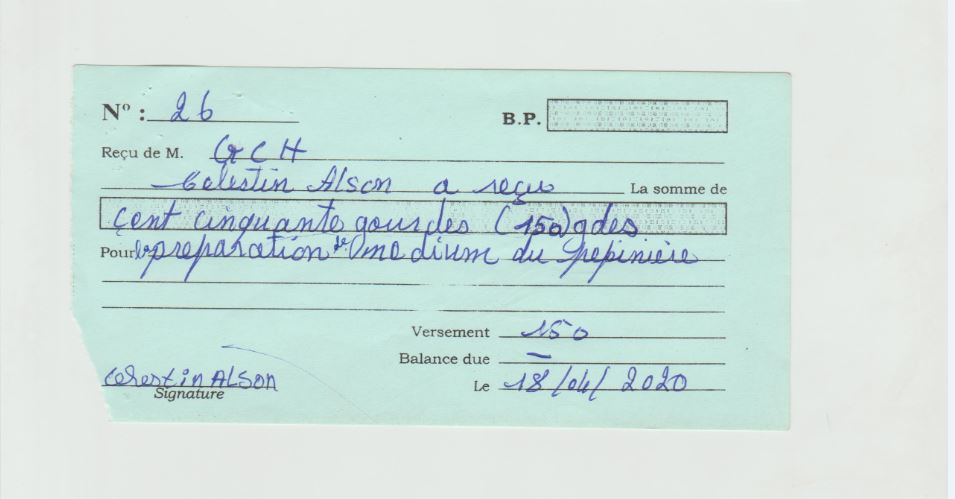 Nº : 26
B.P.
Reçu de M. GCH
Celestin Alson a reçu La somme de
Çent cinquante gourdes (150) gdes
Pour la preparation de medium du pepinière
Versement 150
Balance due —
Celestin ALSON
Signature
Le 18/04/2020